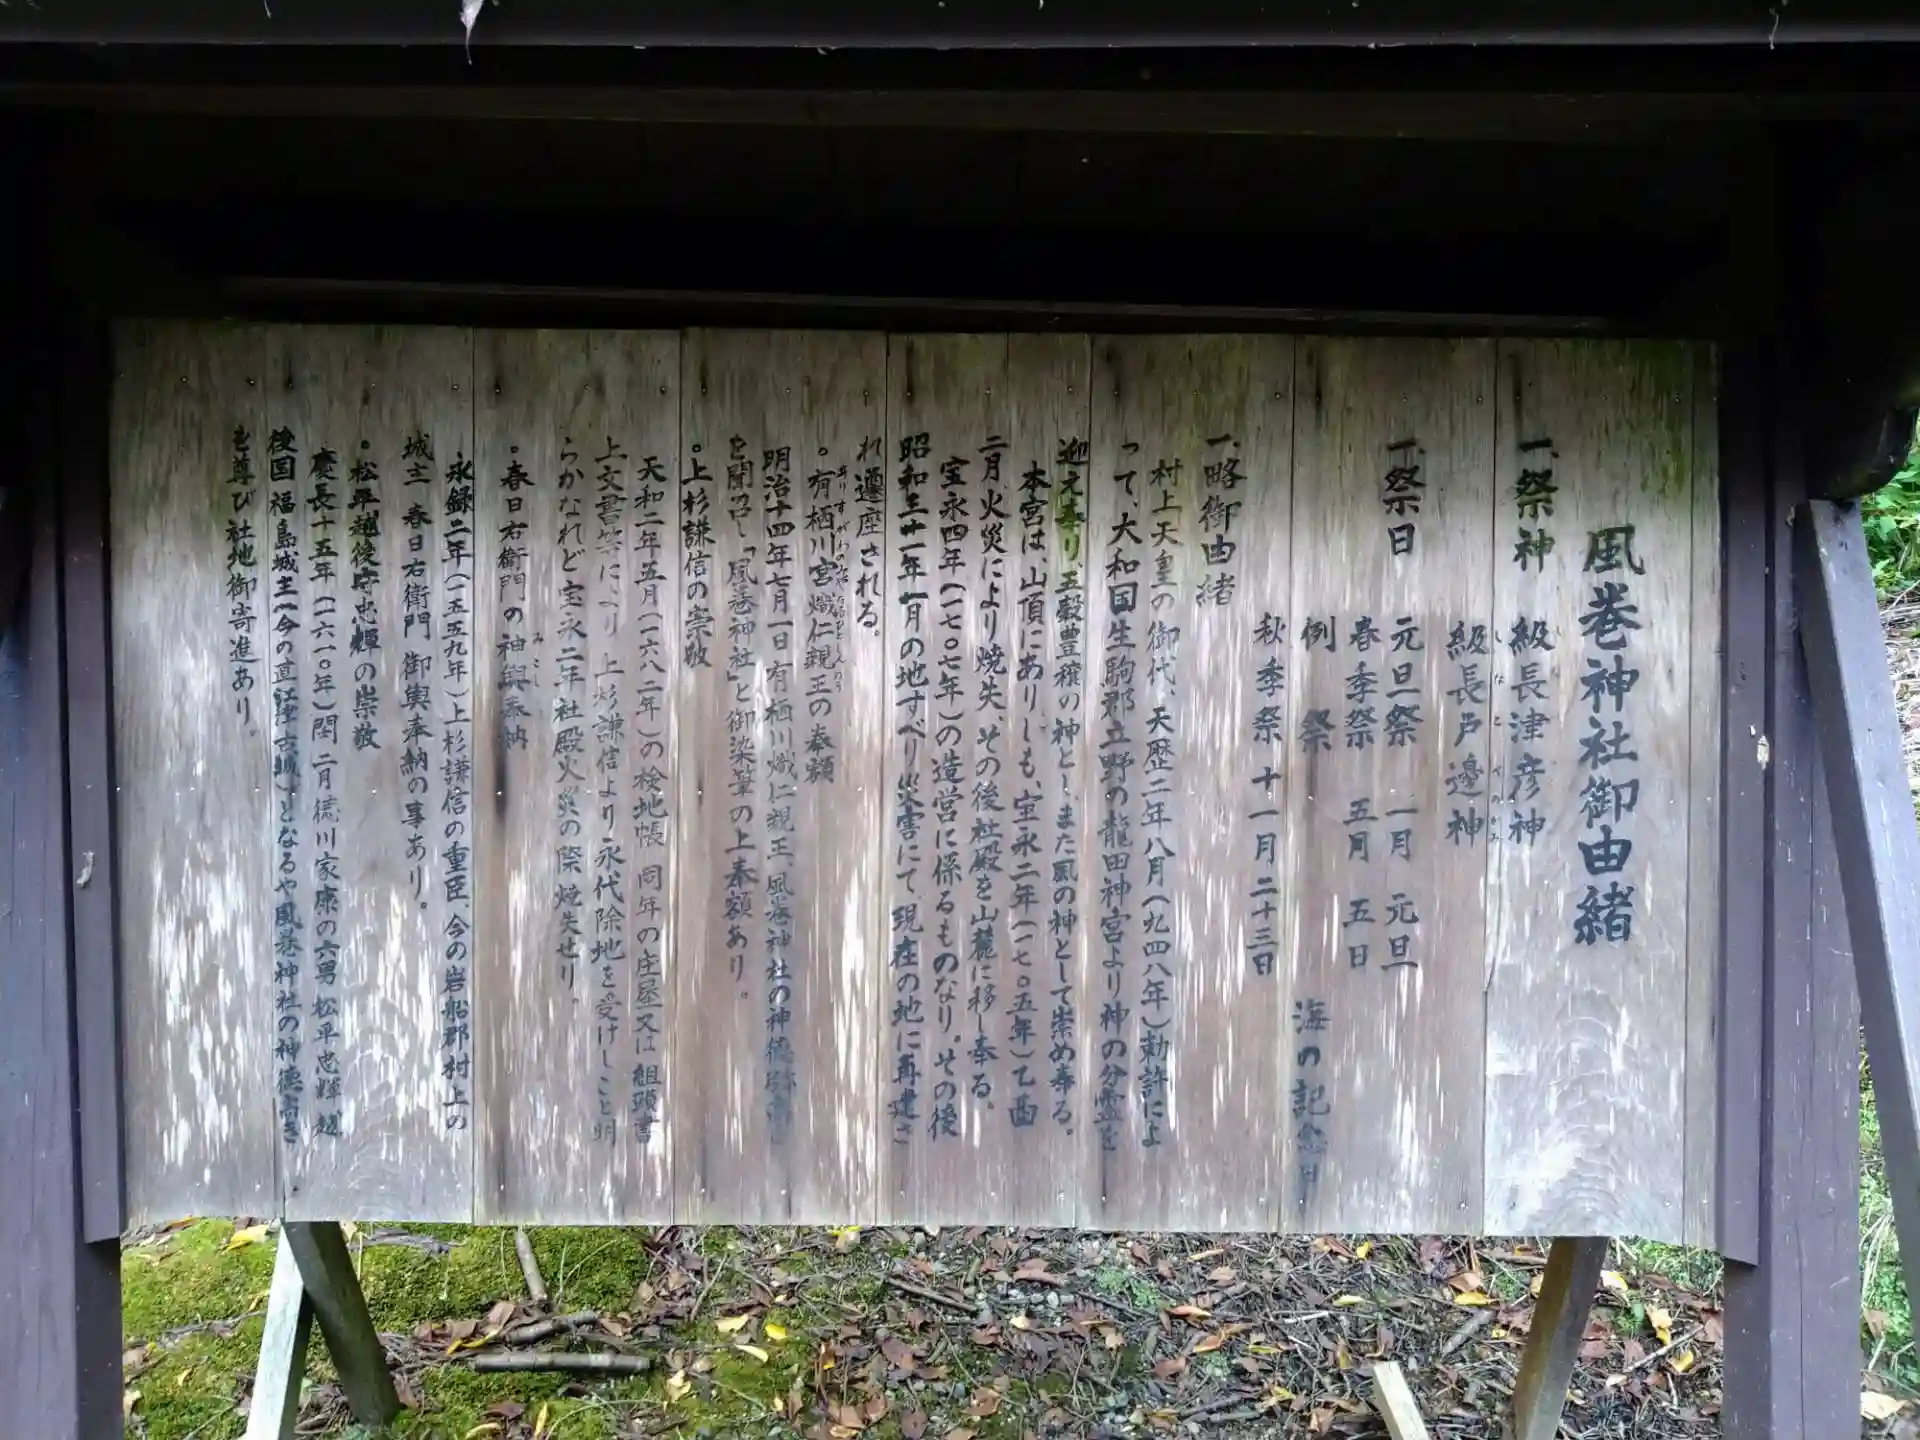 風巻神社御由緒
一、祭神 級長津彦神
級長戸邊神
一、祭日 元旦祭 一月 元旦
春季祭 五月 五日
例祭 海の記念日
秋季祭 十一月二十三日
一、略御由緒
村上天皇の御代、天歴二年八月(九四八年)勅許によ
って、大和国生駒郡立野の龍田神宮より神の分霊を
迎え奉り、五穀豊穣の神とし、また風の神として崇め奉る。
本宮は、山頂にありしも、宝永二年(一七〇五年)乙酉
二月、火災により焼失、その後社殿を山麓に移し奉る。
宝永四年(一七〇七年)の造営に係るものなり。その後
昭和三十一年一月の地すべり災害にて、現在の地に再建さ
れ遷座される。
。有栖川宮熾仁親王の奉額
明治十四年七月一日有栖川熾仁親王、風巻神社の神徳
を聞召し「風巻神社」と御染筆の上奉額あり。
。上杉謙信の崇敬
天和二年五月(一六八二年)の検地帳 同年の庄屋又は組頭書
上文書等により 上杉謙信より永代除地を受けしこと明
らかなれど宝永二年社殿火災の際焼失せり。
。春日右衛門の神輿奉納
永録二年(一五五九年)上杉謙信の重臣、今の岩船郡村上の
城主 春日右衛門 御輿奉納の事あり。
。松平越後守忠輝の崇敬
慶長十五年(一六一〇年)閏二月徳川家康の六男 松平忠輝 越
後国福島城主(今の直江津古城)となるや風巻神社の神徳高き
を尊び社地御寄進あり。